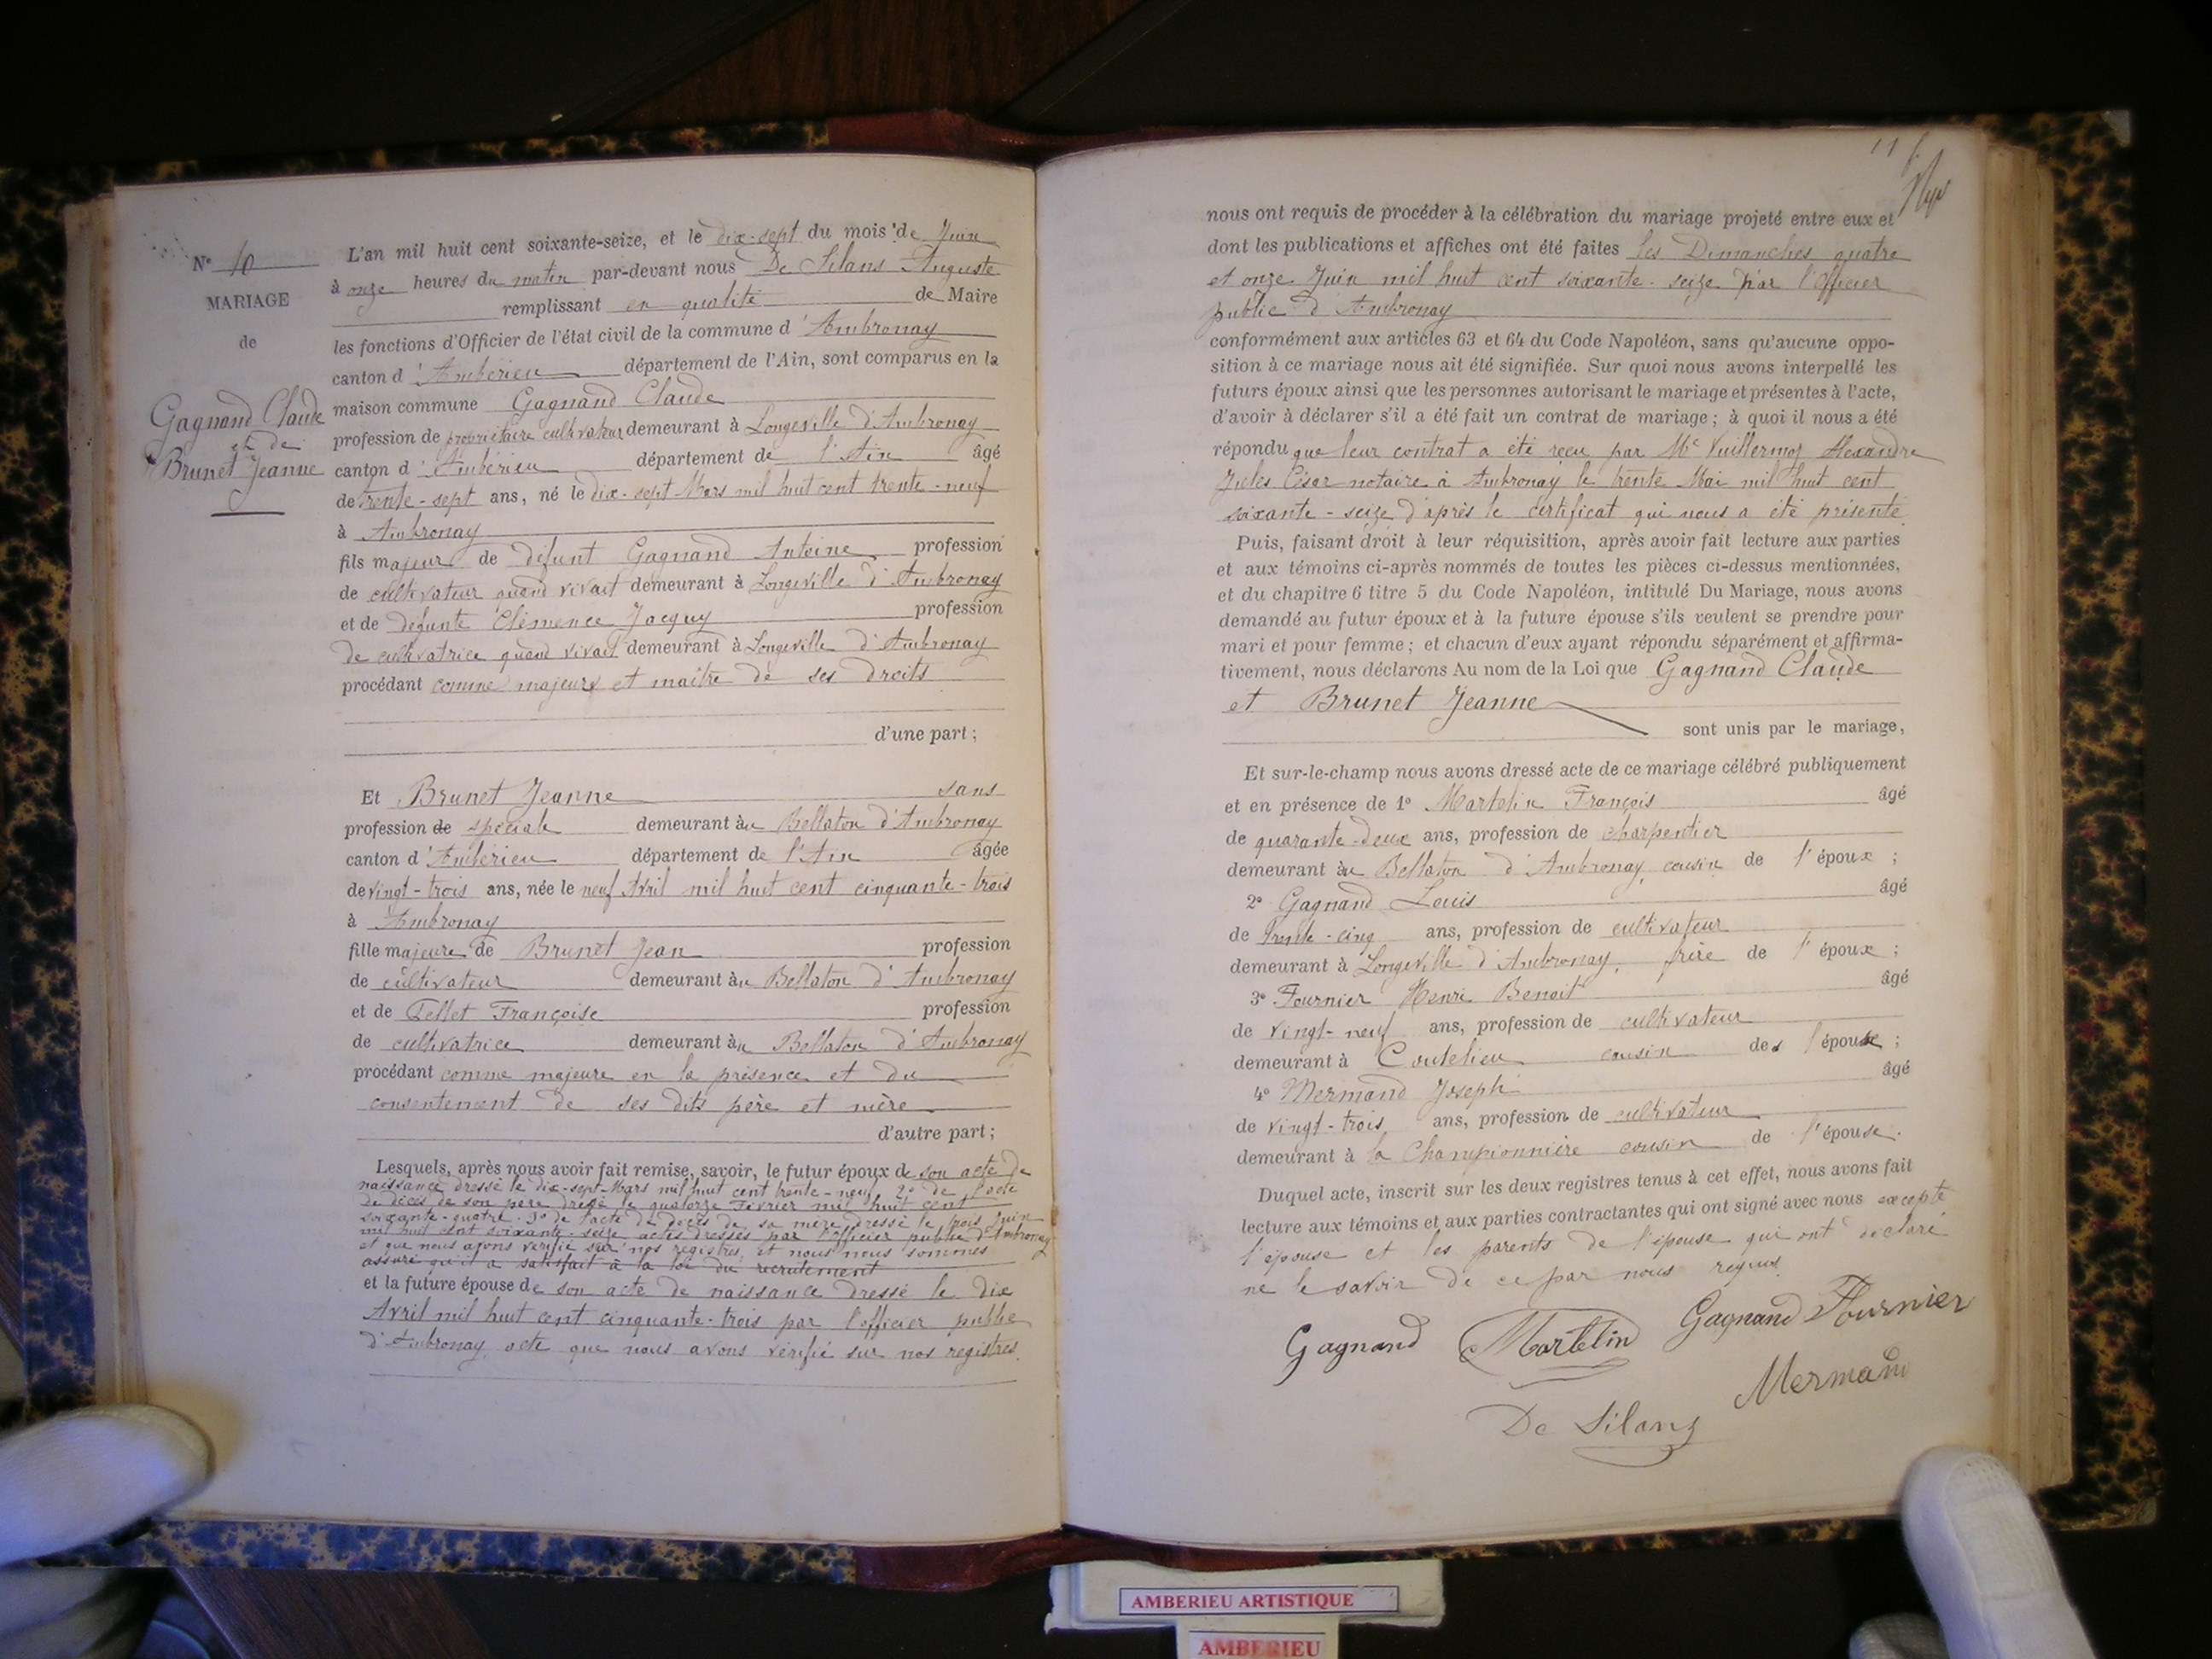 N° 10
MARIAGE
de
Gagnand Claude
et de
Brunet Jeanne
L'an mil huit cent soixante-seize, et le dix-sept du mois de Juin
à onze heures du matin par-devant nous De Silans Auguste
remplissant en qualité de Maire
les fonctions d'Officier de l'état civil de la commune d'Ambronay
canton d'Ambérieu département de l'Ain, sont comparus en la
maison commune Gagnand Claude
profession de propriétaire cultivateur demeurant à Longeville d'Ambronay
canton d'Ambérieu département de l'Ain âgé
de trente-sept ans, né le dix-sept Mars mil huit cent trente-neuf
à Ambronay
fils majeur de défunt Gagnand Antoine profession
de cultivateur quand vivait demeurant à Longeville d'Ambronay
et de défunte Clémence Jacquy profession
de cultivatrice quand vivait demeurant à Longeville d'Ambronay
procédant comme majeur et maître de ses droits
d'une part;
Et Brunet Jeanne sans
profession de spéciale demeurant au Bellaton d'Ambronay
canton d'Ambérieu département de l'Ain âgée
de vingt-trois ans, née le neuf Avril mil huit cent cinquante-trois
à Ambronay
fille majeure de Brunet Jean profession
de cultivateur demeurant au Bellaton d'Ambronay
et de Tellet Françoise profession
de cultivatrice demeurant au Bellaton d'Ambronay
procédant comme majeure en la présence et du
consentement de ses dits père et mère
d'autre part;
Lesquels, après nous avoir fait remise, savoir, le futur époux de son acte de
naissance dressé le dix-sept Mars mil huit cent trente-neuf 2° de l'acte
de décès de son père dressé le quatorze Février mil huit cent
soixante-quatre. 3° de l'acte de décès de sa mère dressé le trois Juin
mil huit cent soixante-seize actes dressés par l'officier public d'Ambronay
et que nous avons vérifié sur nos registres, et nous nous sommes
assuré qu'il a satisfait à la loi du recrutement
et la future épouse de son acte de naissance dressé le dix
Avril mil huit cent cinquante-trois par l'officier public
d'Ambronay, acte que nous avons vérifié sur nos registres.
11
nous ont requis de procéder à la célébration du mariage projeté entre eux et
dont les publications et affiches ont été faites les Dimanches quatre
et onze Juin mil huit cent soixante-seize par l'Officier
public d'Ambronay
conformément aux articles 63 et 64 du Code Napoléon, sans qu'aucune oppo-
sition à ce mariage nous ait été signifiée. Sur quoi nous avons interpellé les
futurs époux ainsi que les personnes autorisant le mariage et présentes à l'acte,
d'avoir à déclarer s'il a été fait un contrat de mariage; à quoi il nous a été
répondu que leur contrat a été reçu par Me Vuillermoz Alexandre
Jules César notaire à Ambronay le trente Mai mil huit cent
soixante-seize d'après le certificat qui nous a été présenté.
Puis, faisant droit à leur réquisition, après avoir fait lecture aux parties
et aux témoins ci-après nommés de toutes les pièces ci-dessus mentionnées,
et du chapitre 6 titre 5 du Code Napoléon, intitulé Du Mariage, nous avons
demandé au futur époux et à la future épouse s'ils veulent se prendre pour
mari et pour femme; et chacun d'eux ayant répondu séparément et affirma-
tivement, nous déclarons Au nom de la Loi que Gagnand Claude
et Brunet Jeanne
sont unis par le mariage,
Et sur-le-champ nous avons dressé acte de ce mariage célébré publiquement
et en présence de 1° Martelin François âgé
de quarante-deux ans, profession de charpentier
demeurant au Bellaton d'Ambronay, cousin de l'époux;
2° Gagnand Louis âgé
de trente-cinq ans, profession de cultivateur
demeurant à Longeville d'Ambronay, frère de l'époux;
3° Fournier Henri Benoit âgé
de vingt-neuf ans, profession de cultivateur
demeurant à Coutelieu cousin de l'épouse;
4° Mermand Joseph âgé
de vingt-trois ans, profession de cultivateur
demeurant à la Championnière cousin de l'épouse.
Duquel acte, inscrit sur les deux registres tenus à cet effet, nous avons fait
lecture aux témoins et aux parties contractantes qui ont signé avec nous excepté
l'épouse et les parents de l'épouse qui ont déclaré
ne le savoir de ce par nous requis.
Gagnand Martelin Gagnand Fournier
Mermand
De Silans
AMBERIEU ARTISTIQUE
AMBERIEU